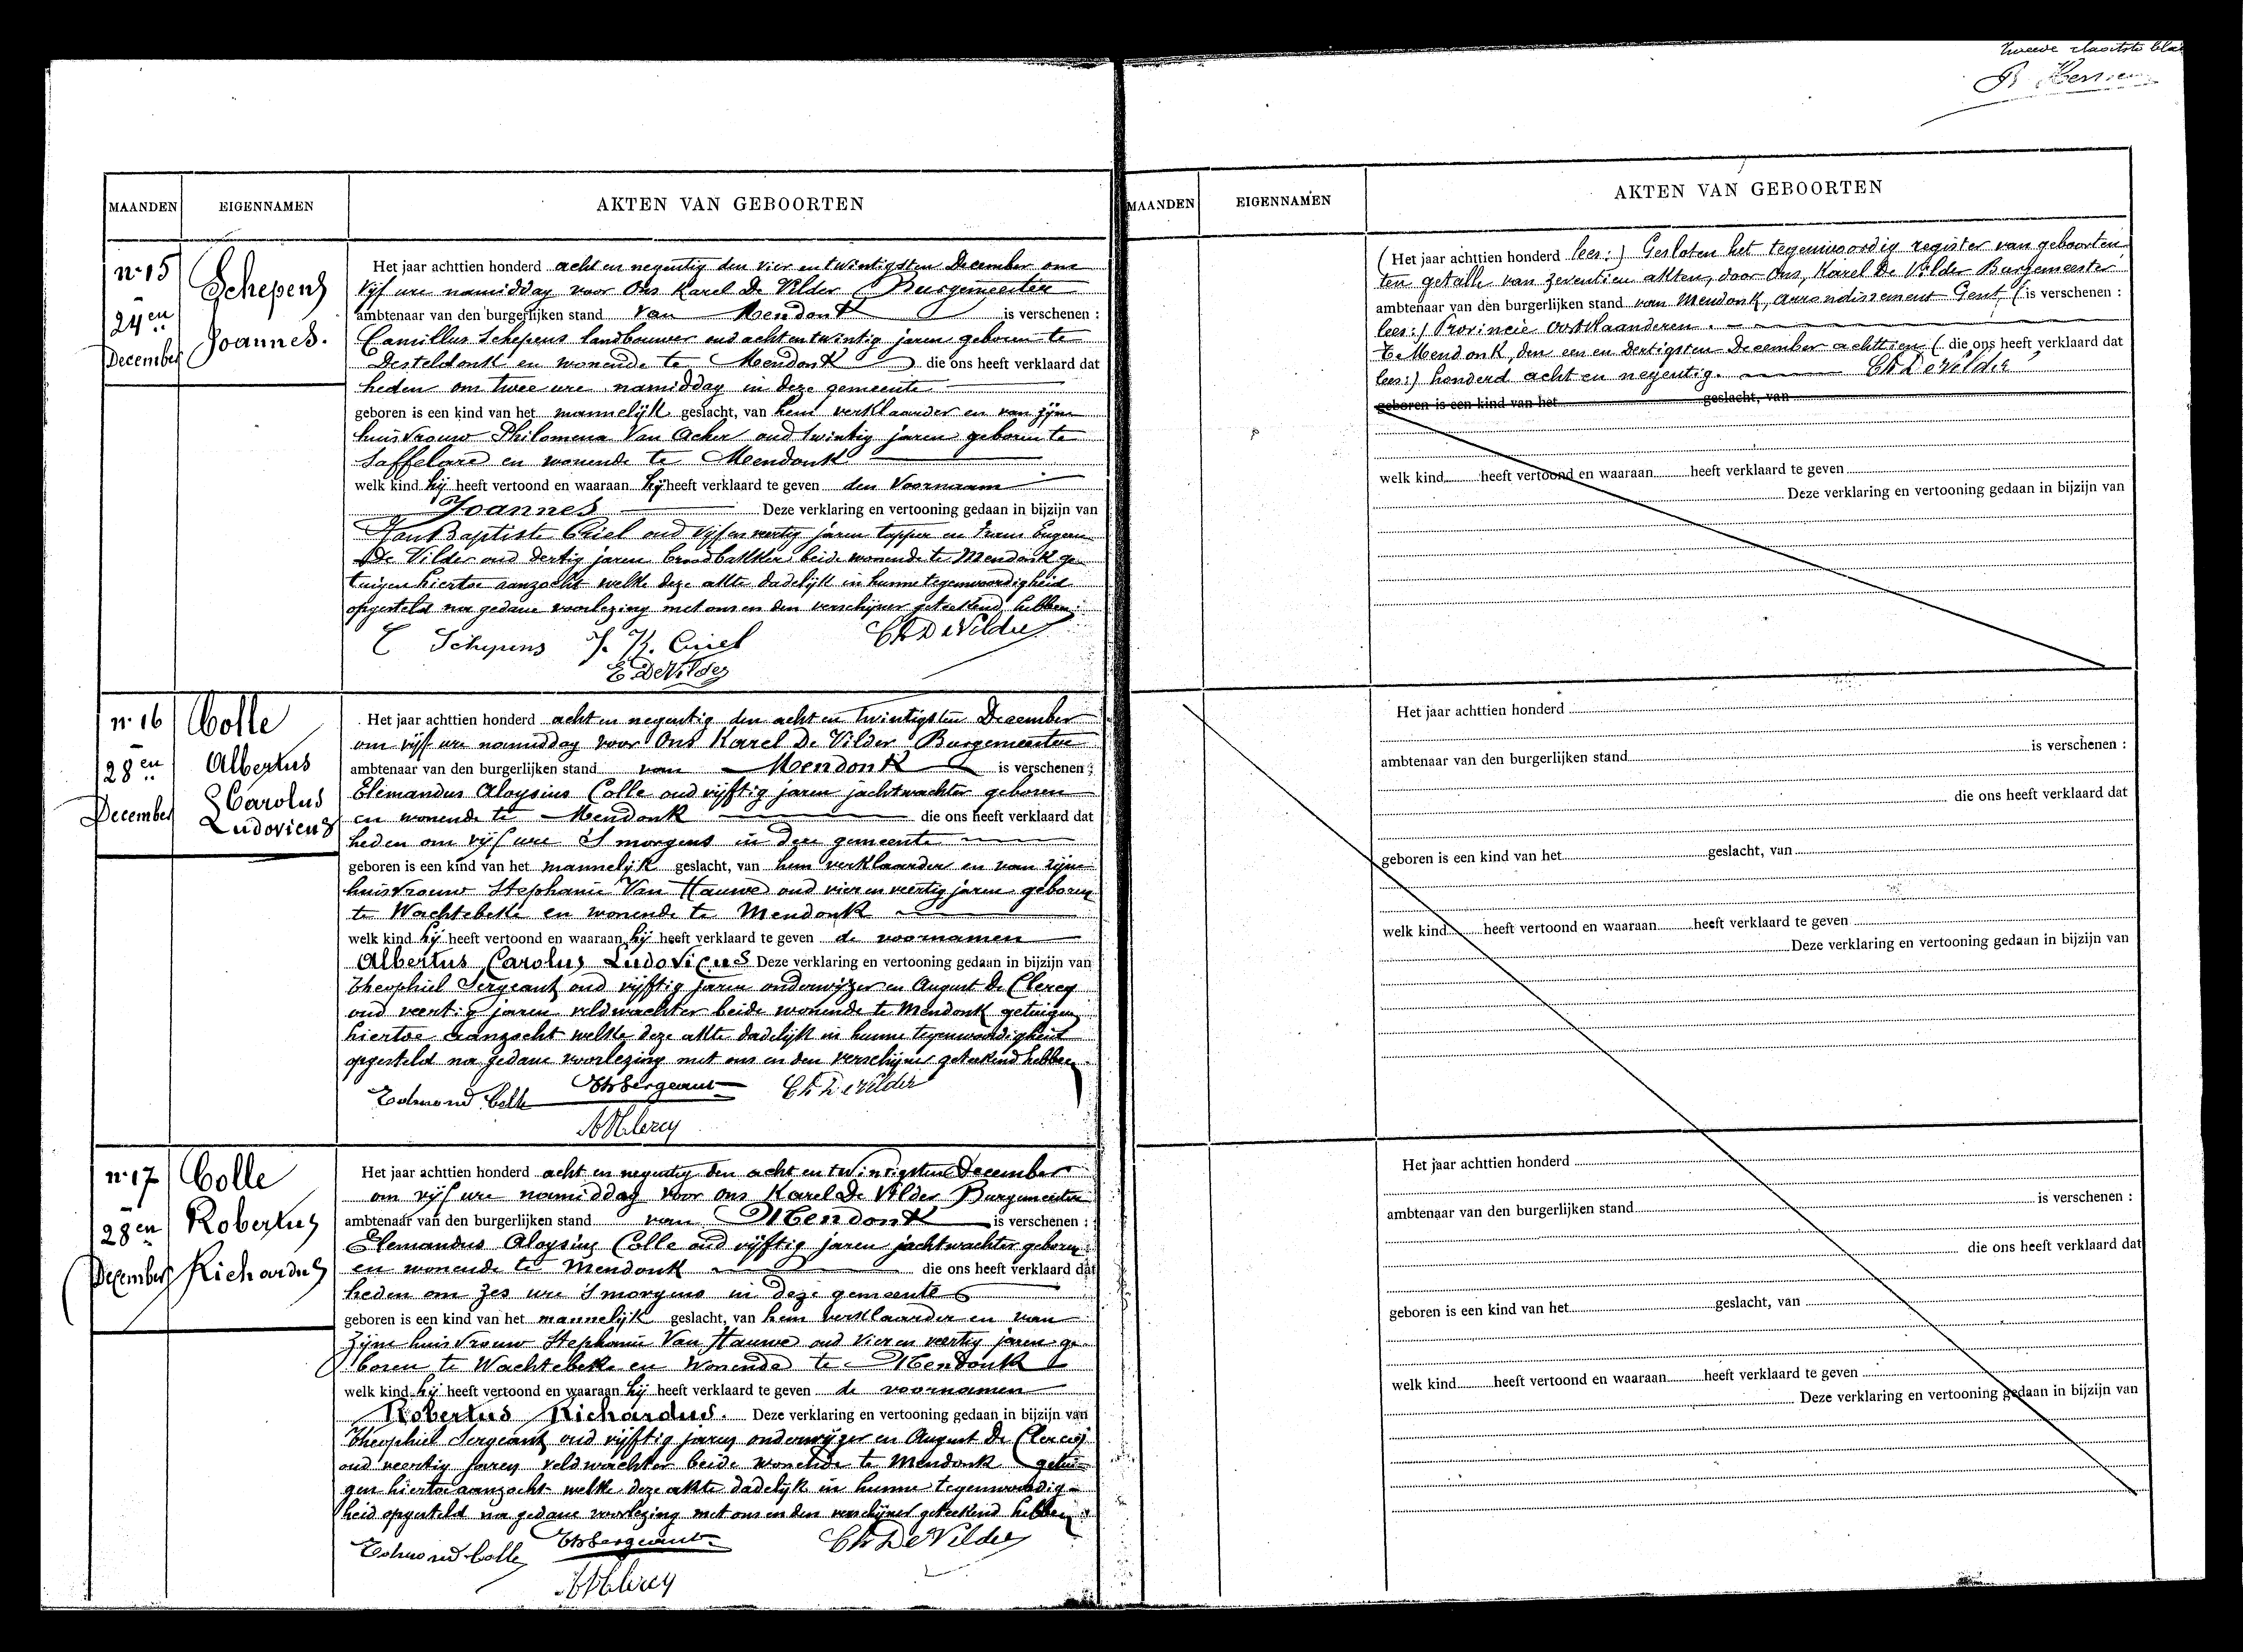 tweede
MAANDEN EIGENNAMEN AKTEN VAN GEBOORTEN
nr 15
24en
December
Schepens
Joannes.
Het jaar achttien honderd acht en negentig den vier en twintigsten December om
vijf ure namiddag voor Ons Karel De Vilder Burgemeester
ambtenaar van den burgerlijken stand van Mendonk is verschenen :
Camillus Schepens landbouwer oud acht en twintig jaren geboren te
Desteldonk en wonende te Mendonk die ons heeft verklaard dat
heden om twee ure namiddag in deze gemeente
geboren is een kind van het mannelijk geslacht, van hem verklaarder en van zijne
huisvrouw Philomena Van Acker oud twintig jaren geboren te
Saffelare en wonende te Mendonk
welk kind hij heeft vertoond en waaraan hij heeft verklaard te geven den Voornaam
Joannes Deze verklaring en vertooning gedaan in bijzijn van
Jan Baptiste Criel oud vijf en veertig jaren tapper en Frans Eugeen
De Vilder oud dertig jaren broodbakker beide wonende te Mendonk ge-
tuigen hiertoe aanzocht welke deze akte dadelijk in hunne tegenwoordigheid
opgesteld na gedane voorlezing met ons en den verschijner geteekend hebben.
C Schepens J. B. Criel Ch De Vilder
E. De Vilder
nr 16
28en
December
Colle
Albertus
Carolus
Ludovicus
Het jaar achttien honderd acht en negentig den acht en twintigsten December
om vijf ure namiddag voor Ons Karel De Vilder Burgemeester
ambtenaar van den burgerlijken stand van Mendonk is verschenen :
Elemandus Aloysius Colle oud vijftig jaren jachtwachter geboren
en wonende te Mendonk die ons heeft verklaard dat
heden om vijf ure 's morgens in deze gemeente
geboren is een kind van het mannelijk geslacht, van hem verklaarder en van zijne
huisvrouw Stephanie Van Hauwe oud vier en veertig jaren geboren
te Wachtebeke en wonende te Mendonk
welk kind hij heeft vertoond en waaraan hij heeft verklaard te geven de voornamen
Albertus Carolus Ludovicus Deze verklaring en vertooning gedaan in bijzijn van
Theophiel Sergeant oud vijftig jaren onderwijzer en August De Clercq
oud veertig jaren veldwachter beide wonende te Mendonk getuigen
hiertoe aanzocht welke deze akte dadelijk in hunne tegenwoordigheid
opgesteld na gedane voorlezing met ons en den verschijner geteekend hebben.
Edmond Colle Th Sergeant Ch De Vilder
A De Clercq
nr 17
28en
December
Colle
Robertus
Richardus
Het jaar achttien honderd acht en negentig den acht en twintigsten December
om vijf ure namiddag voor ons Karel De Vilder Burgemeester
ambtenaar van den burgerlijken stand van Mendonk is verschenen :
Elemandus Aloysius Colle oud vijftig jaren jachtwachter geboren
en wonende te Mendonk die ons heeft verklaard dat
heden om zes ure 's morgens in deze gemeente
geboren is een kind van het mannelijk geslacht, van hem verklaarder en van
zijne huisvrouw Stephanie Van Hauwe oud vier en veertig jaren ge-
boren te Wachtebeke en wonende te Mendonk
welk kind hij heeft vertoond en waaraan hij heeft verklaard te geven de voornamen
Robertus Richardus. Deze verklaring en vertooning gedaan in bijzijn van
Theophiel Sergeant oud vijftig jaren onderwijzer en August De Clercq
oud veertig jaren veldwachter beide wonende te Mendonk getui-
gen hiertoe aanzocht welke deze akte dadelijk in hunne tegenwoordig-
heid opgesteld na gedane voorlezing met ons en den verschijner geteekend hebben.
Edmond Colle Th Sergeant Ch De Vilder
A De Clercq
MAANDEN EIGENNAMEN AKTEN VAN GEBOORTEN
(Het jaar achttien honderd lees:) Gesloten het tegenwoordig register van geboorten
ten getalle van zeventien akten, door Ons, Karel De Vilder Burgemeester
ambtenaar van den burgerlijken stand van Mendonk, arrondissement Gent, (is verschenen :
lees:) Provincie Oostvlaanderen.
Te Mendonk, den een en dertigsten December achttien (die ons heeft verklaard dat
lees:) honderd acht en negentig. Ch De Vilder
geboren is een kind van het geslacht, van
welk kind heeft vertoond en waaraan heeft verklaard te geven
Deze verklaring en vertooning gedaan in bijzijn van
Het jaar achttien honderd
ambtenaar van den burgerlijken stand is verschenen :
die ons heeft verklaard dat
geboren is een kind van het geslacht, van
welk kind heeft vertoond en waaraan heeft verklaard te geven
Deze verklaring en vertooning gedaan in bijzijn van
Het jaar achttien honderd
ambtenaar van den burgerlijken stand is verschenen :
die ons heeft verklaard dat
geboren is een kind van het geslacht, van
welk kind heeft vertoond en waaraan heeft verklaard te geven
Deze verklaring en vertooning gedaan in bijzijn van